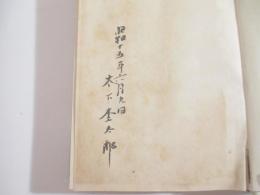 昭和十五年六月九日
木下杢太郎